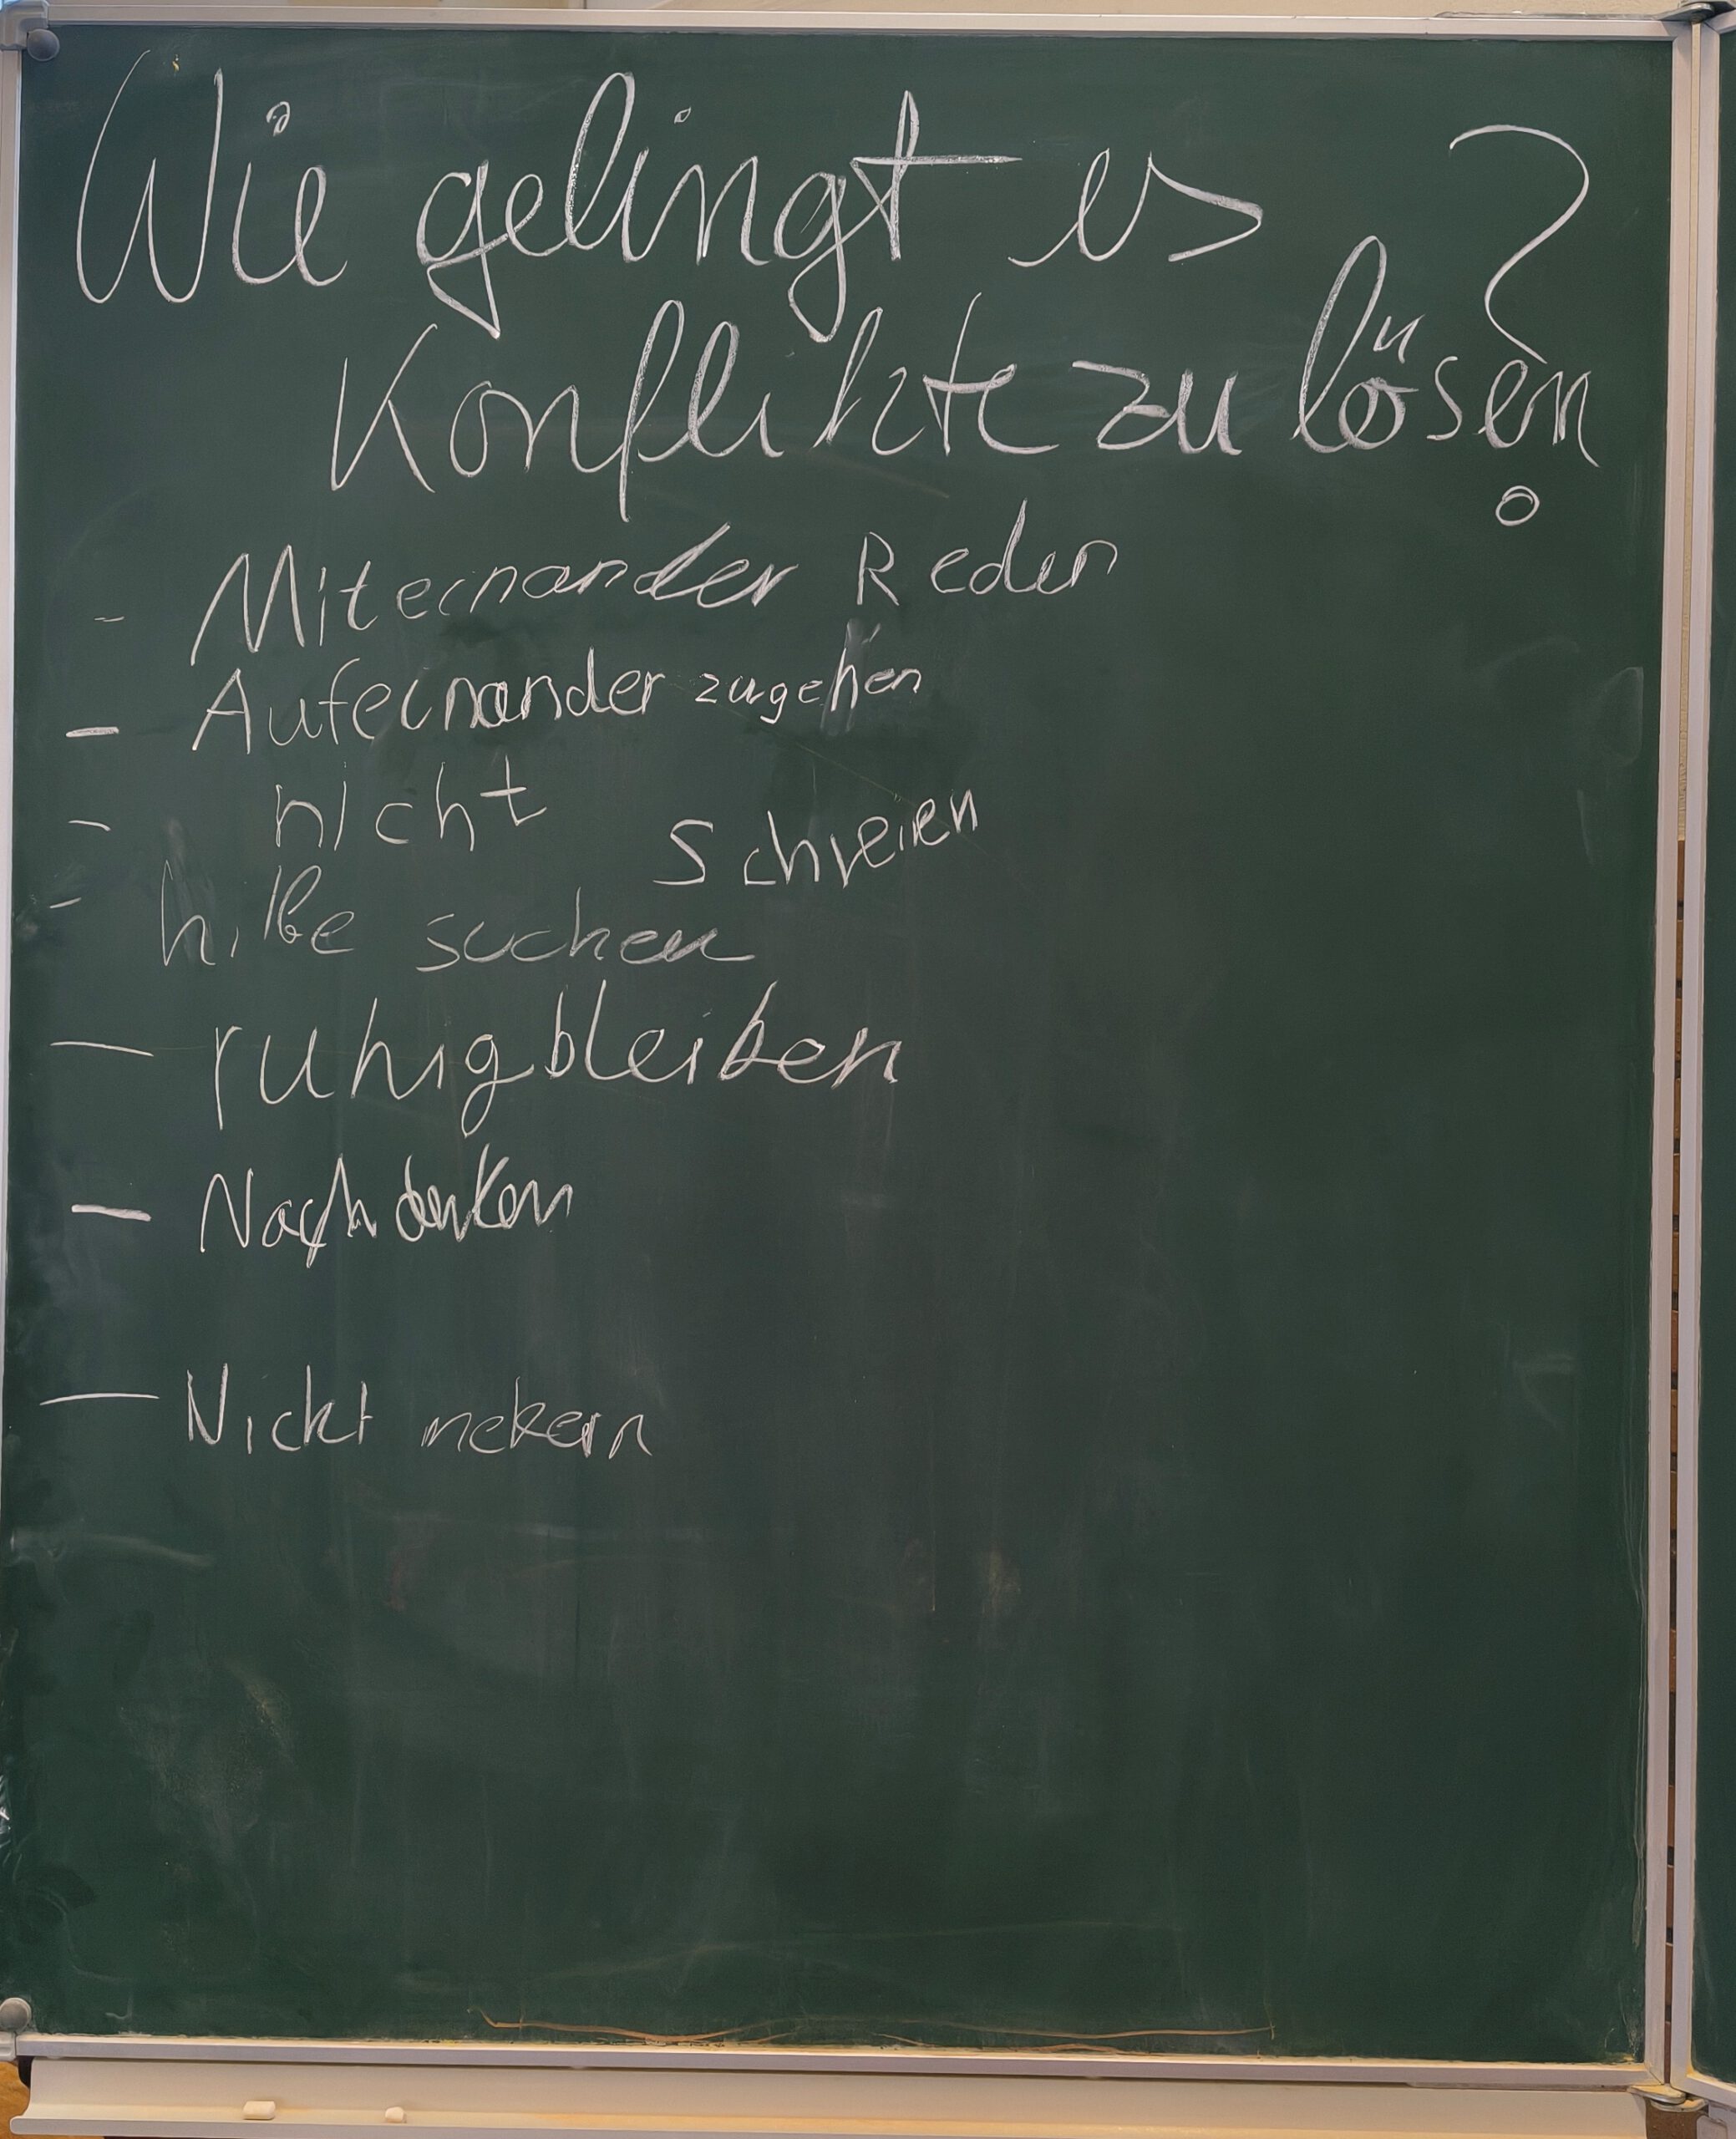 Wie gelingt es
Konflikte zu lösen?
- Miteinander Reden
- Aufeinander zugehen
- nicht schreien
- hilfe suchen
- ruhig bleiben
- Nachdenken
- Nicht mekern